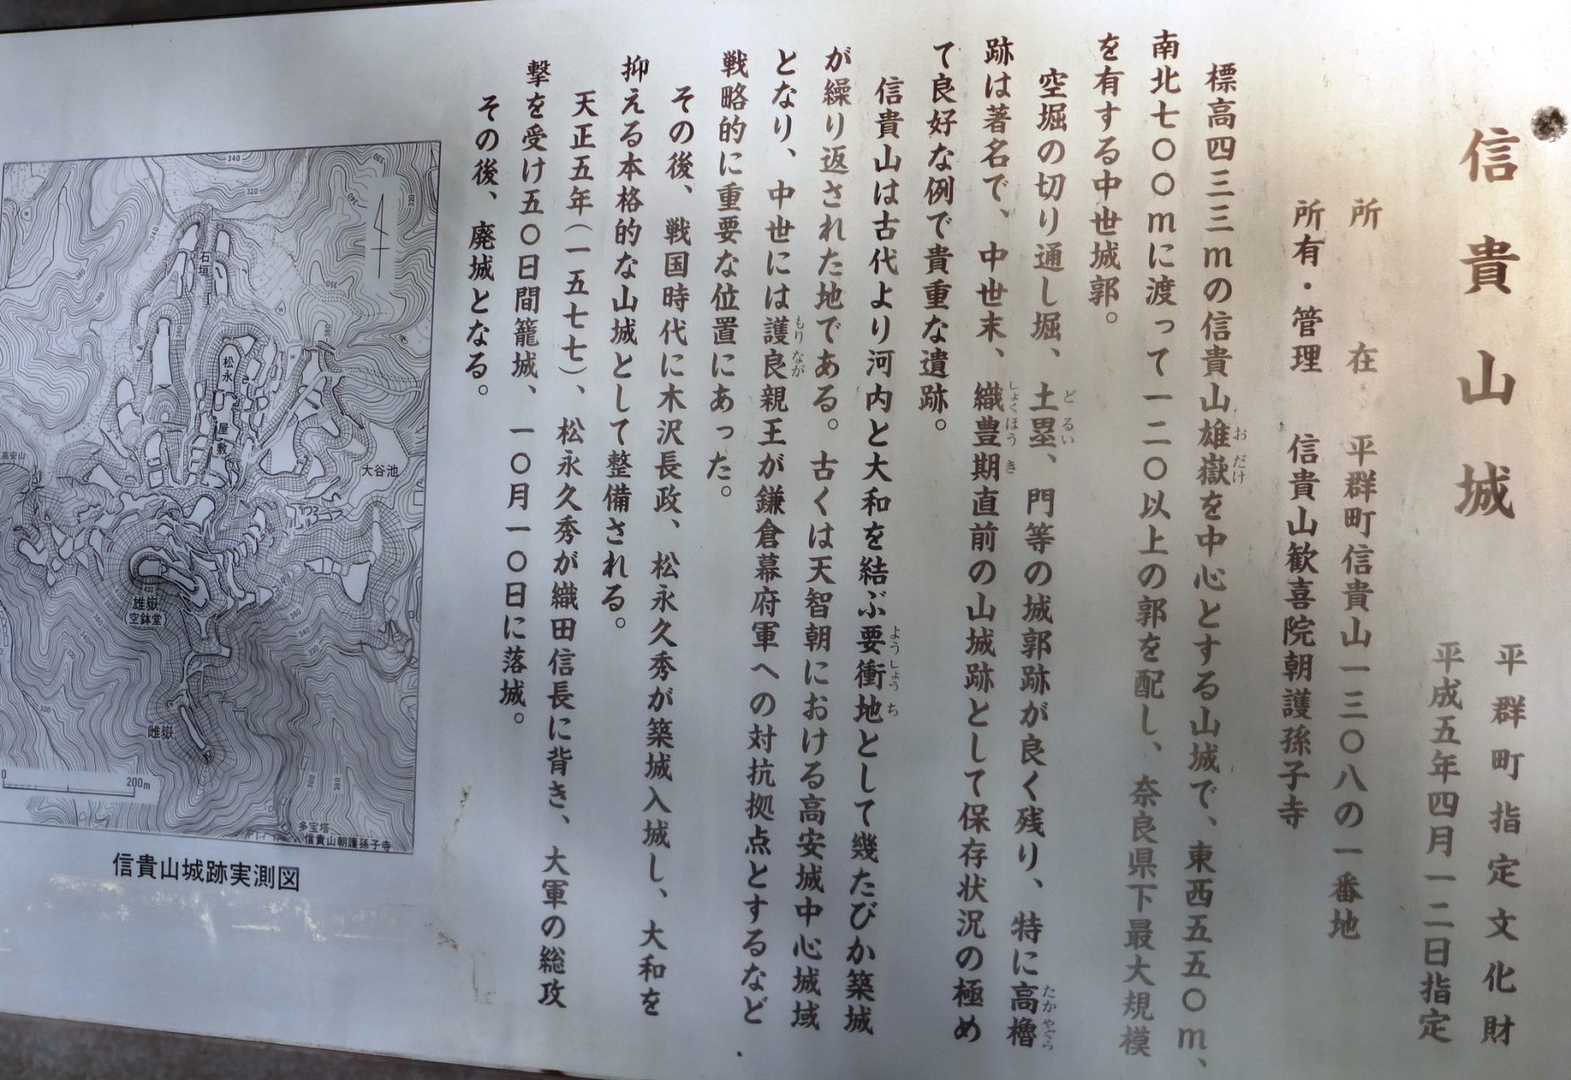 信貴山城
平群町指定文化財
平成五年四月一二日指定
所在 平群町信貴山一三〇八の一番地
所有・管理 信貴山歓喜院朝護孫子寺
標高四三三mの信貴山雄嶽を中心とする山城で、東西五五〇m、
おだけ
南北七〇〇mに渡って一二〇以上の郭を配し、奈良県下最大規模
を有する中世城郭。
空堀の切り通し堀、土塁、門等の城郭跡が良く残り、特に高櫓
どるい
たかやぐら
跡は著名で、中世末、織豊期直前の山城跡として保存状況の極め
しょくほうき
て良好な例で貴重な遺跡。
信貴山は古代より河内と大和を結ぶ要衝地として幾たびか築城
ようしょうち
が繰り返された地である。古くは天智朝における高安城中心城域
となり、中世には護良親王が鎌倉幕府軍への対抗拠点とするなど
もりなが
戦略的に重要な位置にあった。
その後、戦国時代に木沢長政、松永久秀が築城入城し、大和を
抑える本格的な山城として整備される。
天正五年(一五七七)、松永久秀が織田信長に背き、大軍の総攻
撃を受け五〇日間籠城、一〇月一〇日に落城。
その後、廃城となる。
石垣
松永屋敷
大谷池
高安山
雄嶽
(空鉢堂)
雌嶽
0 200m
多宝塔
信貴山朝護孫子寺
信貴山城跡実測図